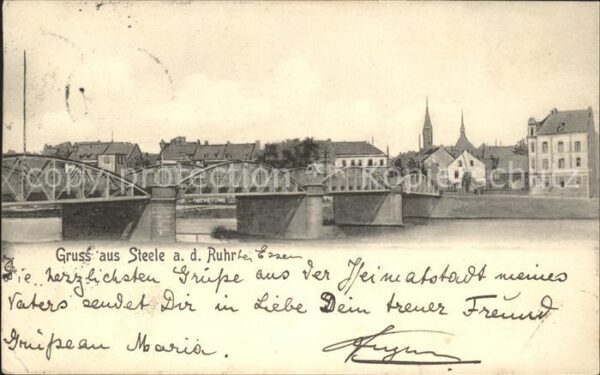 Gruss aus Steele a. d. Ruhr bei Essen
Die herzlichsten Grüße aus der Heimatstadt meines
Vaters sendet Dir in Liebe Dein treuer Freund
Grüße an Maria.
ansichtskarten-center.de